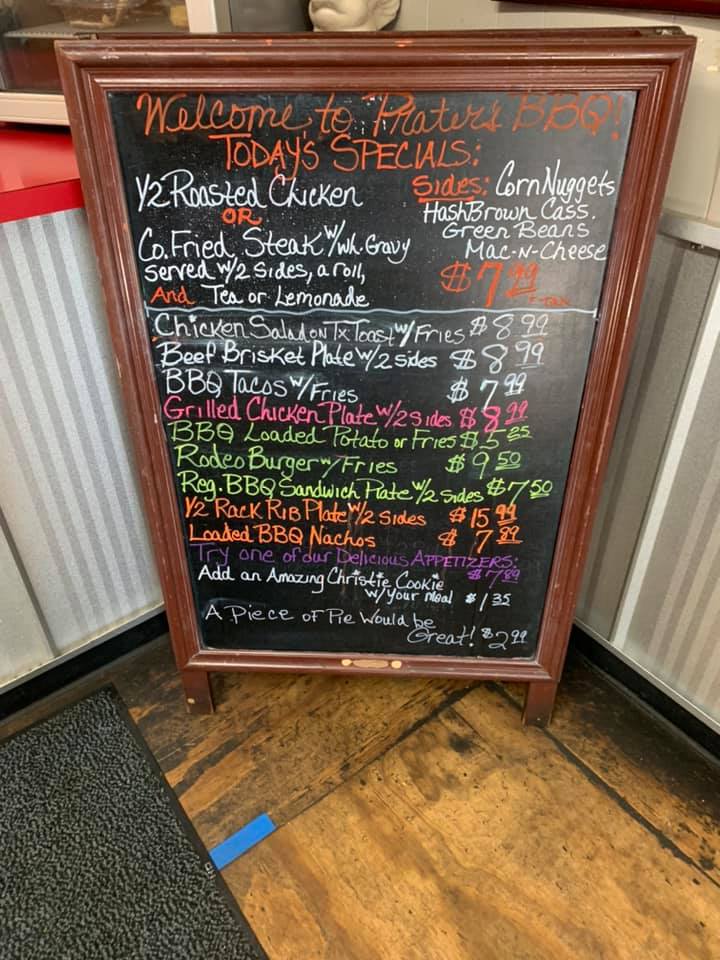 Welcome to Prater's BBQ!
TODAY'S SPECIALS:
1/2 Roasted Chicken
OR
Co. Fried Steak w/ Wh. Gravy
served w/2 sides, a roll,
And Tea or Lemonade
Sides: Corn Nuggets
HashBrown Cass.
Green Beans
Mac-N-Cheese
$7.99
+ TAX
Chicken Salad on Tx Toast w/ Fries $8.99
Beef Brisket Plate w/2 sides $8.99
BBQ Tacos w/Fries $7.99
Grilled Chicken Plate w/2 sides $8.99
BBQ Loaded Potato or Fries $5.25
Rodeo Burger w/Fries $9.50
Reg. BBQ Sandwich Plate w/2 sides $7.50
1/2 Rack Rib Plate w/2 sides $15.99
Loaded BBQ Nachos $7.89
Try one of our Delicious APPETIZERS:
$7.89
Add an Amazing Christie Cookie
w/your meal $1.35
A Piece of Pie Would be
Great! $2.99